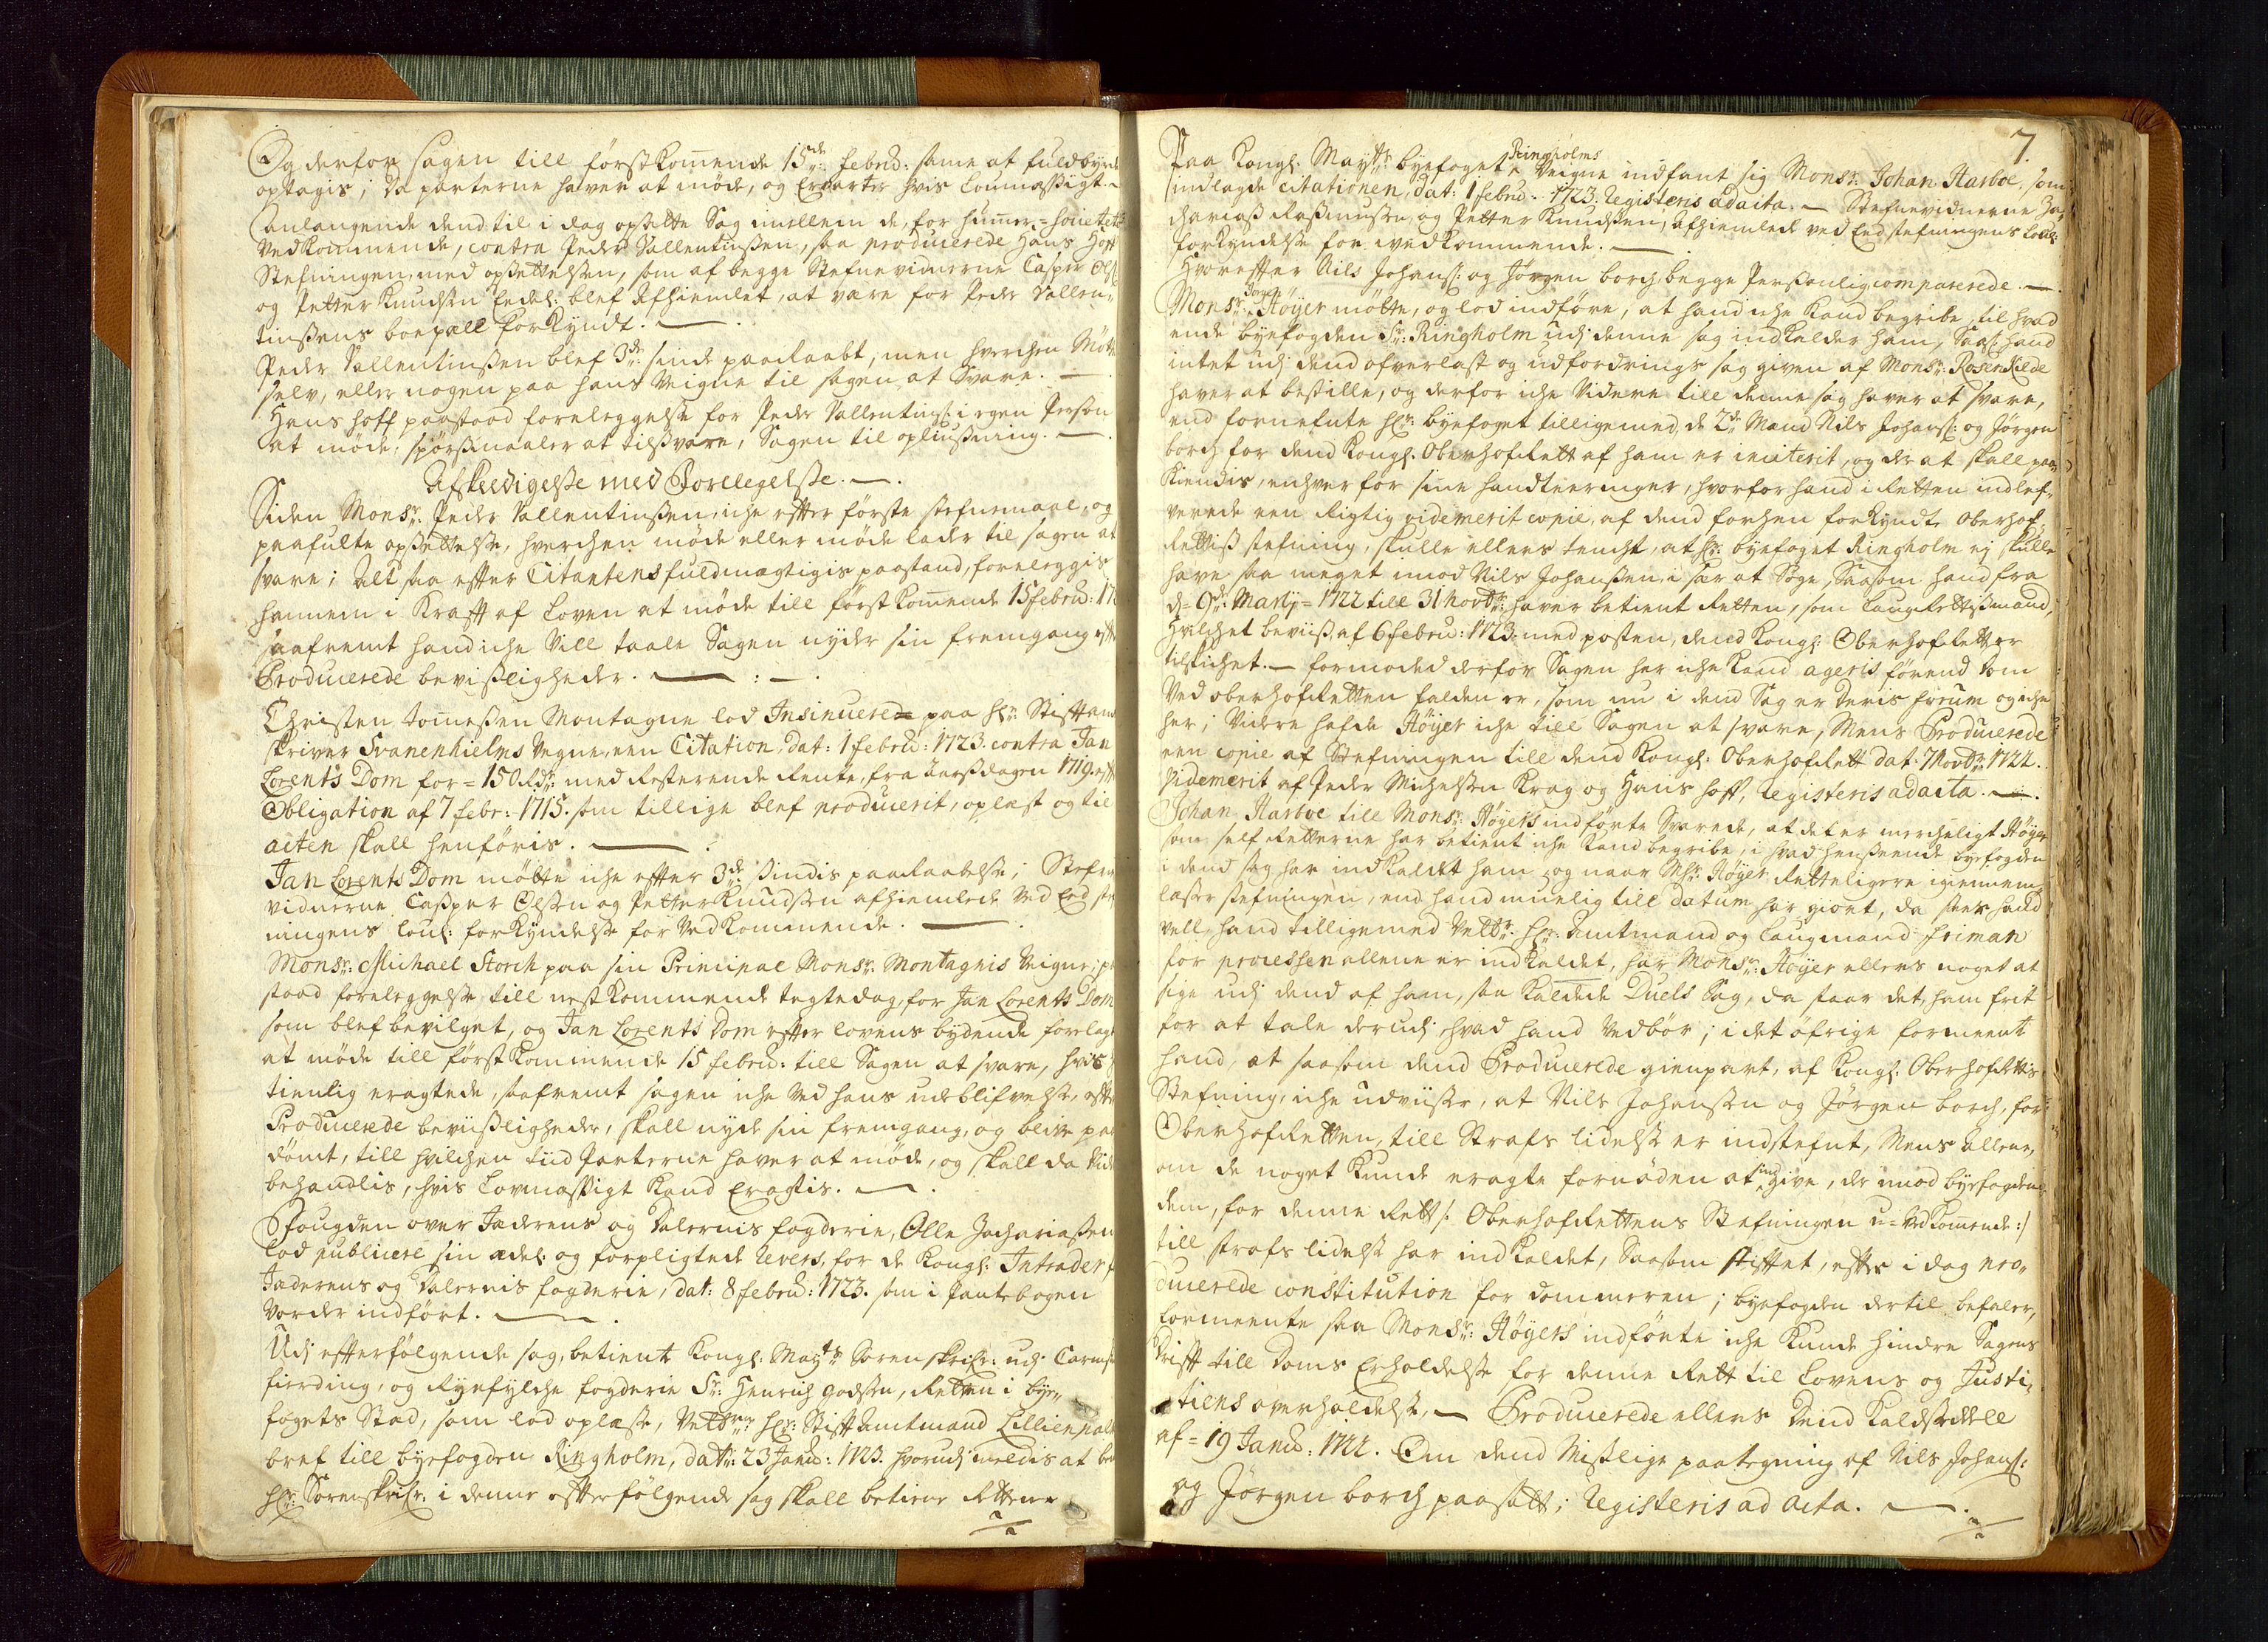 Og derfor sagen till förstkom̄ende 15de: febru: same at fuldbyrde
optagis; da parterne haver at möde, og Erwarte hvis loumaßigt.
Anlangende dend til i dag opsatte Sag imellem de, for hum̄er-
Vedkommende, contra Peder Vallentinßen, saa producerede Hans Hoff
Stefningen, med opsettelsen, som af begge Stefnevidnerne Casper Ols:
og Petter Knudsen Eedel: blef Afhiemlet, at være for Peder Vallen-
tinßens boepæll forkyndt.
Peder Vallentinßen blef 3de: sinde paaraabt, men hverchen Mötte
selv, eller nogen paa hans Veigne til sagen at Svare.
Hans Hoff paastoed foreleggelse for Peder Vallentins: i egen Person
at möde, spörsmaaler at tilsvare, Sagen til opliusning.
Afskeedigelse med Forelegelse.
Siden Monsr: Peder Vallentinßen, iche efter förste stefnemaal, og
paafulte opsettelse, hverchen möde eller möde lader til sagen at
svare; Altsaa efter Citantens fuldmægtigis paastand, foreleggis
hannem i Kraft af loven at möde till förstkom̄ende 15 febru: 17
saafremt hand iche Vill taale Sagen nyder sin fremgang efter
Producerede bevisligheder.
Christen Tom̄eßen Montagne lod Insinuerede paa Hr: Stiftamt
skriver Svanenhielms Vegne, een Citation, dat: 1 febru: 1723. contra Jan
Lorents Dom for = 150 Rdr: med Resterende Rente, fra 1719. efter
Obligation af 7 febr: 1715. som tillige blef producerit, oplæst og til
acten skall henföris.
Jan Lorents Dom mötte iche efter 3de sindis paaraabelse; Stefne
vidnerne Casper Olsen og Petter Knudsen afhiemlede Ved Eed stef
ningens loul: forkyndelse for Vedkommende.
Monsr: Michael Storch paa sin Principal Monsr: Montagnis Veigne, paa
stoed foreleggelse till nestkommende tegtedag, for Jan Lorents Dom
som blef bevilget, og Jan Lorents Dom efter lovens bydende forelagt
at möde till förstkommende 15 febru: till Sagen at svare, hvis
tienlig eragtede, saafremt sagen iche ved hans udeblifvelse, efter
Producerede bevisligheder, skall nyde sin fremgang, og blive paa
dömt, till hvilchen tiid Parterne haver at möde, og skall da Vide
behandlis, hvis Lovmæssigt kand Eragtis.
Fougden over Jæderens og Dalernis fogderie, Olle Zachariaßen
lod publicere sin ædel: og forpligtede Revers, for de Kongl: Intrader
Jæderens og Dalernis fogderie, dat: 8 febru: 1723. som i Pantebogen
vorder indfört.
Udj efterfölgende sag, betiente Kongl: Mayts: Sorenskrifr: udj Carmsu
fierding, og Ryefylche fogderie Sr: Henrich Godsen, Retten i bye-
fogets Stad, som lod oplæse, Veldr: Hr: Stiftamtmand Lillienpalm
bref till byefogden Ringholm, datr: 23 Janu: 1723. hvorudj meldis at be
Hr: Sorenskrifr: i denne efterfölgende sag skall betiene Retten.
7.
Paa Kongl: Mayts: byefoget Ringholms Veigne indfant sig Monsr: Johan Aarboe, som
indlagde citationen, dat: 1 febru: 1723. Registeris ad acta. Stefnevidnerne Za-
charias Rasmussen, og Petter Knudsen, afhiemlede ved Eed stefningens loul:
forkyndelse for vedkommende.
Hvorefter Nils Johans: og Jörgen borch begge Persohnlig comparerede.
Monsr: Höyer mötte, og lod indföre, at hand iche kand begribe, til hvad
ende byefogden Sr: Ringholm udj denne sag indkalder ham, Saas: hand
intet udj dend ofverlast og udfordrings sag given af Monsr: Rosenkilde
haver at bestille, og derfor iche Videre till denne sag haver at svare,
end fornefnte Hr: byefoget tilligemed de 2de Mænd Nils Johans: og Jörgen
borch for dend Kongl: Oberhofrett af ham er inviterit, og der at skall paa-
kiendis, enhver for sine handteeringer, hvorfor hand i Retten indlef-
verede een Rigtig videmerit copie, af dend forhen forkyndte Oberhof-
Rettis stefning, skulle ellers tencht, at Hr: byefoget Ringholm ej skulle
have saa meget imod Nils Johanßen, i sær at Söge, Saasom hand fra
d= 9de: Martij = 1722 till 31 Novbr: haver betient Retten, som Laugrettißmand,
Hvilchet beviis af 6 febru: 1723. med posten, dend Kongl: Oberhofrett er
tilschichet. formoded derfor Sagen her iche kand ageris förend dom
Ved oberhofretten falden er, som nu i dend Sag er deris forum og iche
her; Videre hafde Höyer iche till Sagen at svare, Mens Producerede
een copie af Stefningen till dend Kongl: Oberhofrett dat: 7 Novbr: 1722.
Videmerit af Peder Michelsen Krag og Hans Hoff, Registeris ad acta.
Johan Aarboe till Monsr: Höyers indförte Svarede, at det er mercheligt Höyer
som self Retterne har betient iche kand begribe, i hvad henseende byefogden
i dend sag har indkaldt ham, og naar Msr: Höyer Retteligere igiennem-
læser stefningen, end hand muelig till datum har giort, da seer hand
vell, hand tilligemed Veldr: Hr: Amtmand og Laugmand Friman
for processen allene er indkaldet, har Monsr: Höyer ellers noget at
sige udj dend af ham, saa kaldede Duels Sag, da staar det ham frit
for at tale derudj hvad hand Vedbör; i det öfrige formeente
hand, at saasom dend Producerede gienpart, af Kongl: Oberhofrettis
Stefning, iche udviiser, at Nils Johanßen og Jörgen borch, for
Oberhofretten, till Strafs lidelse er indstefnt, Mens allene,
om de noget kunde eragte fornöden at indgive, der imod byefogden
dem, for denne Rett /: Oberhofrettens Stefningen u-vedkom̄ende :/
till strafs lidelse har indkaldet, Saasom stiftet, efter i dag pro-
ducerede constitution for dommeren; byefogden dertil befaler,
formeente saa Monsr: Höyers indförte iche kunde hindre Sagens
drift till Doms Erholdelse for denne Rett til Lovens og Justi-
tiens overholdelse, Producerede ellers dend kaldseddell
af = 19 Janu: 1722. Om dend Mislige paategning af Nils Johans:
og Jörgen borch paasatt; Registeris ad acta.